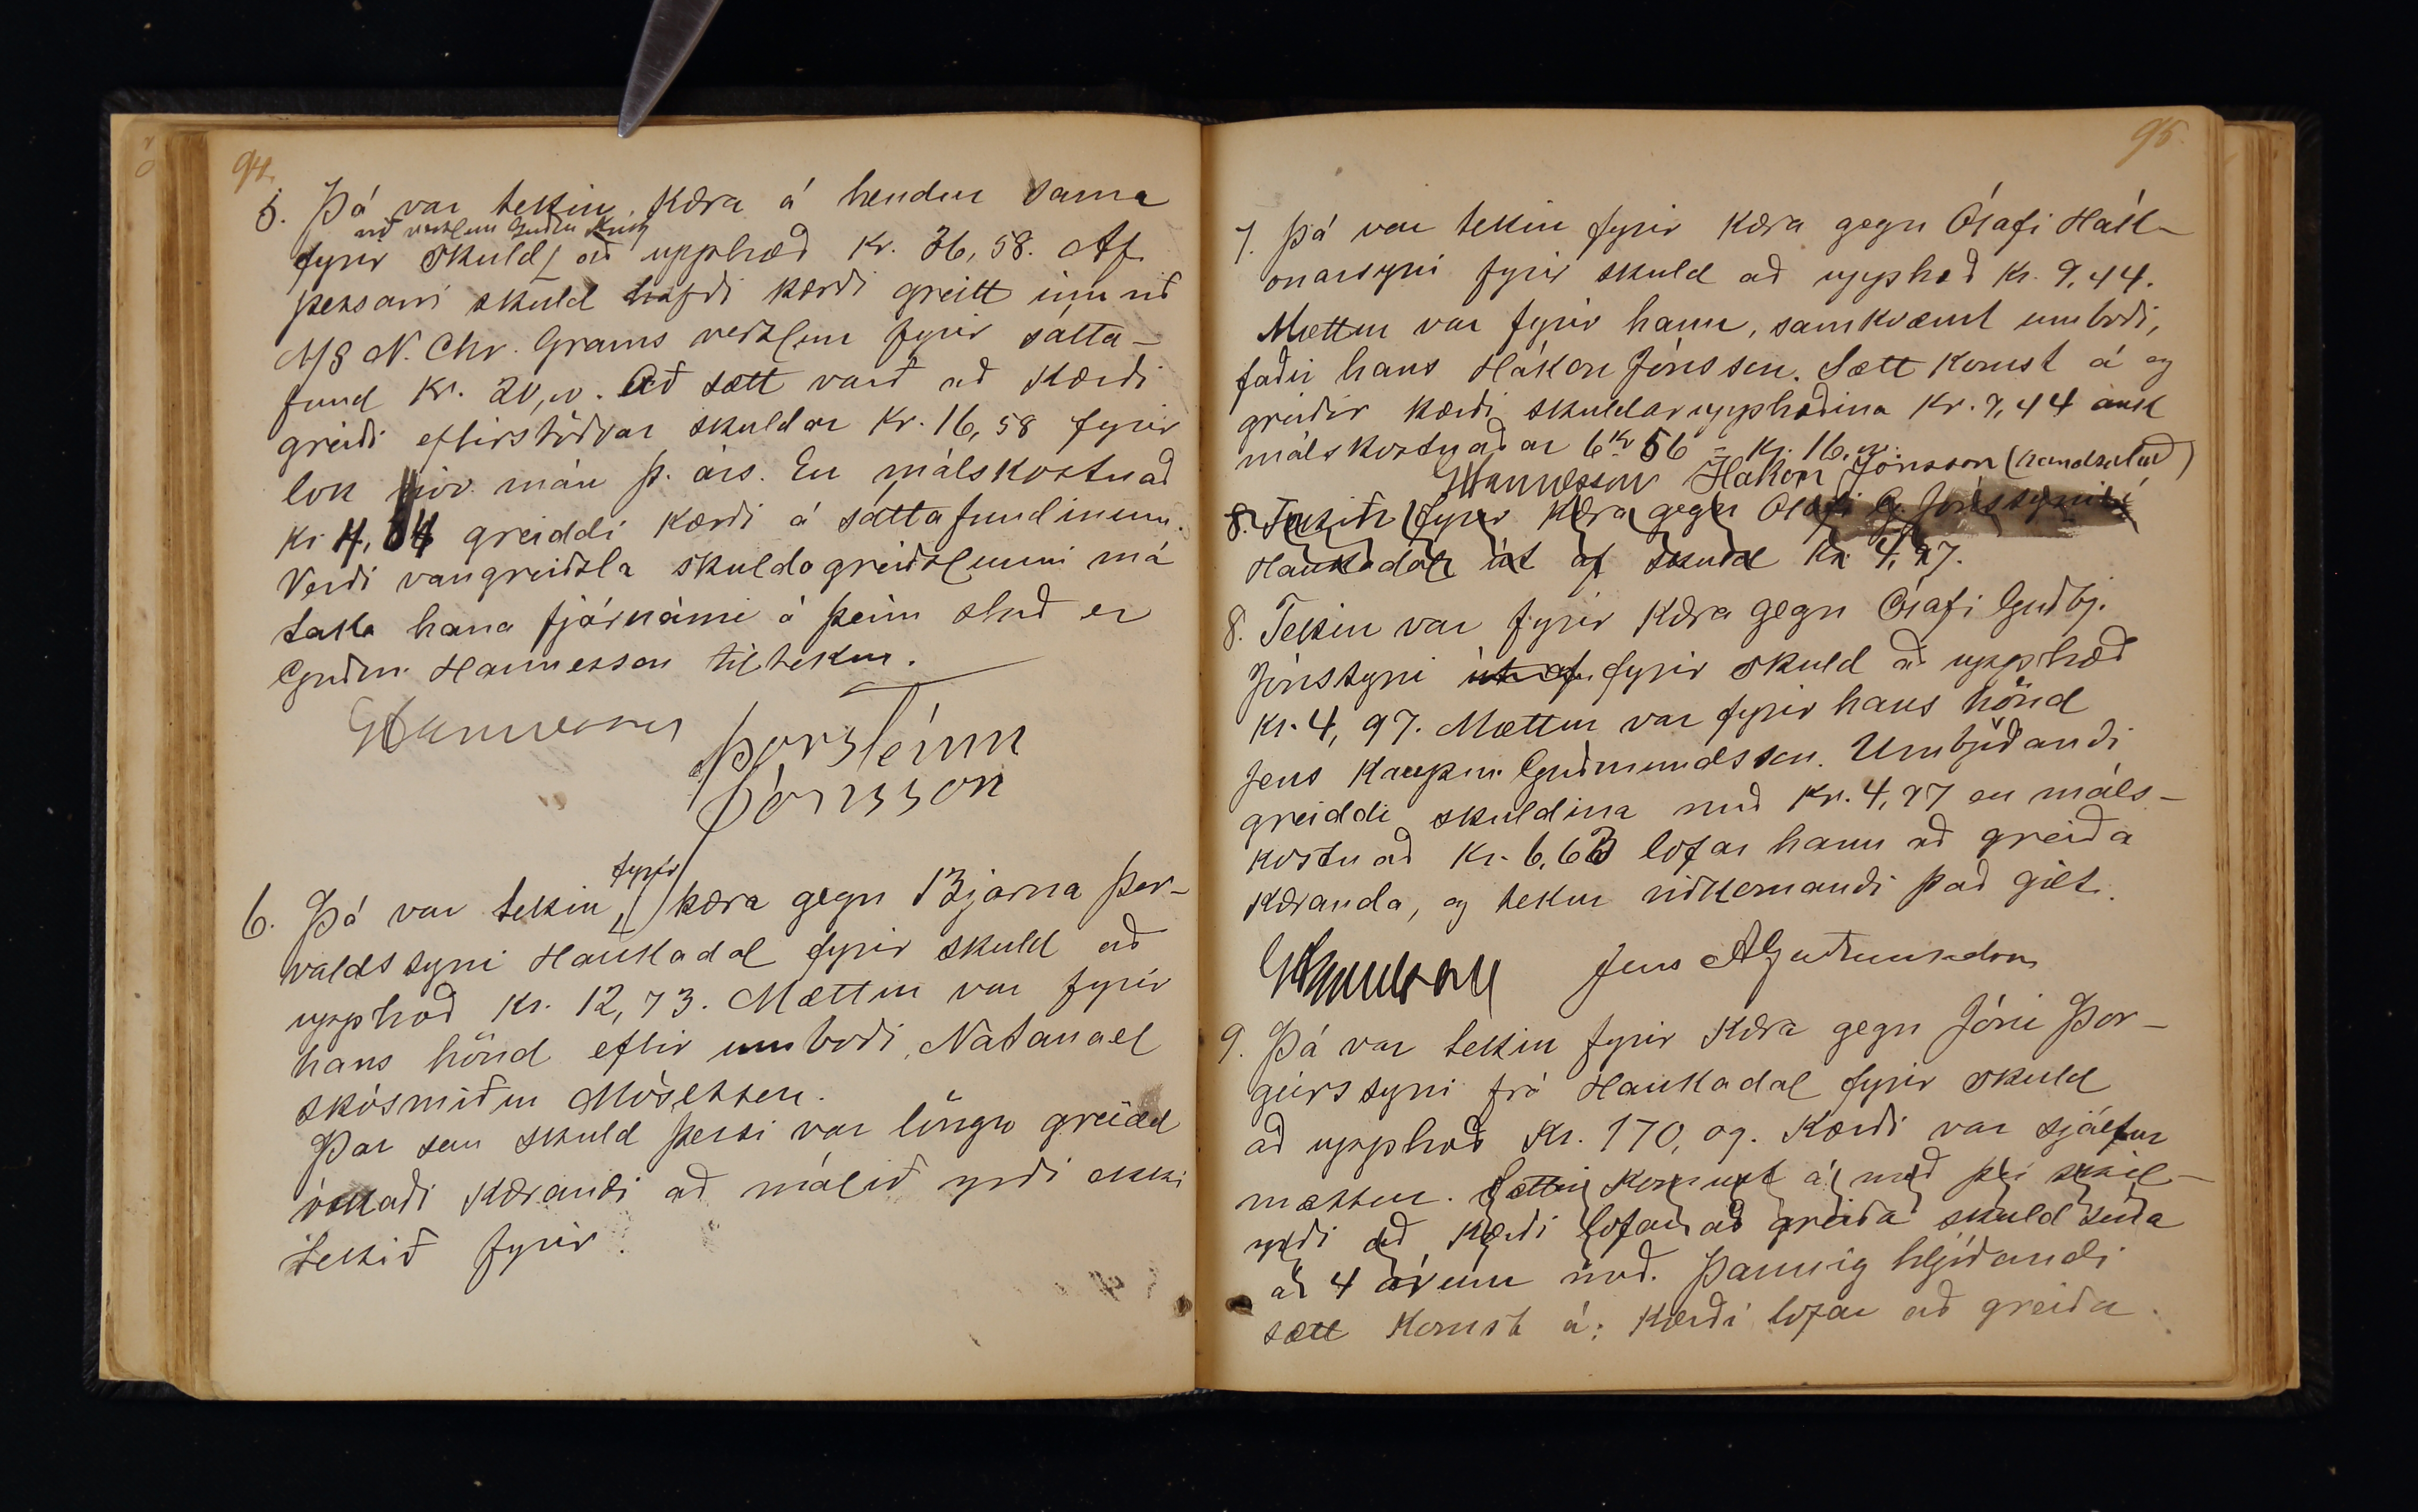 94.
5. Þá var tekin kæra á hendur sama
við verzlun
fyrir skuld að upphæð Kr. 36,58. Af
þessari skuld hafði kærði greitt inn við
N. Chr. Grams verzlun fyrir sátta-
fund Kr. 20,00. Að sætt varð að kærði
greiði eftirstöðvar skuldar Kr. 16,58 fyrir
lok nóv. mán þ. árs. En málskostnað
Kr. 4,84 greiddi kærði á sáttafundinum.
Verði vangreiðsla skuldagreiðslunni má
taka hana fjárnámi á þeim stað er
Guðm. Hannesson tiltekur.
GHannesson
Þorsteinn
Jónsson
6. Þá var tekin fyrir kæra gegn Bjarna Þor-
valdssyni Haukadal fyrir skuld að
upphæð Kr. 12,73. Mættur var fyrir
hans hönd eftir umboði, Natanael
skósmiður Mósesson.
Þar sem skuld þessi var löngu greidd
óskaði kærandi að málið yrði ekki
tekið fyrir.
95.
7. Þá var tekin fyrir kæra gegn Ólafi Hák-
onarsyni fyrir skuld að upphæð Kr. 9,44.
Mættur var fyrir hann, samkvæmt umboði,
faðir hans Hákon Jónsson. Sætt komst á og
greiðir kærði skuldarupphæðina Kr. 9,44 auk
málskostnaðar 6 Kr 56 = Kr. 16,00.
GHannesson Hákon Jónsson (handsalað)
8. Tekin fyrir kæra gegn Ólafi G. Jónssyni í
Haukadal út af skuld Kr. 4,97.
8. Tekin var fyrir kæra gegn Ólafi Guðbj.
Jónssyni út af fyrir skuld að upphæð
Kr. 4,97. Mættur var fyrir hans hönd
Jens kaupm. Guðmundsson. Umbjóðandi
greiddi skuldina með Kr. 4,97 en máls-
kostnað Kr. 6,63 lofar hann að greiða
kæranda, og tekur viðkomandi það gilt.
GHannesson Jens AGuðmundsson
9. Þá var tekin fyrir kæra gegn Jóni Þor-
geirssyni frá Haukadal fyrir skuld
að upphæð Kr. 170,09. Kærði var sjálfur
mættur. Sættir komust á með því skil-
yrði að kærði lofar að greiða skuld sína
á 4 árum með. Þannig hljóðandi
sætt komst á: Kærði lofar að greiða